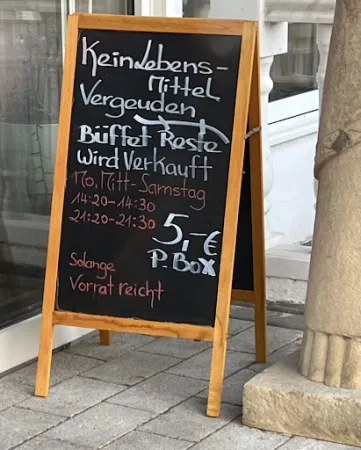 Kein Lebens-
Mittel
Vergeuden
Büffet Reste
Wird Verkauft
Mo, Mitt-Samstag
14:20-14:30
21:20-21:30
5,-€
P. Box
Solange
Vorrat reicht